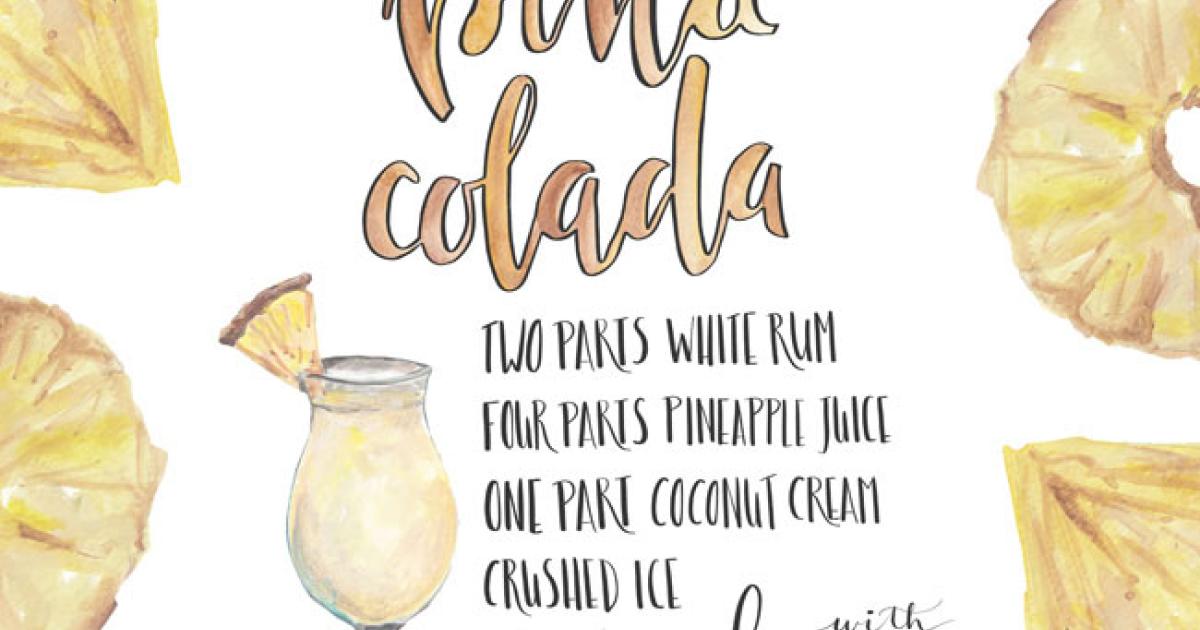 piña
colada
TWO PARTS WHITE RUM
FOUR PARTS PINEAPPLE JUICE
ONE PART COCONUT CREAM
CRUSHED ICE
with